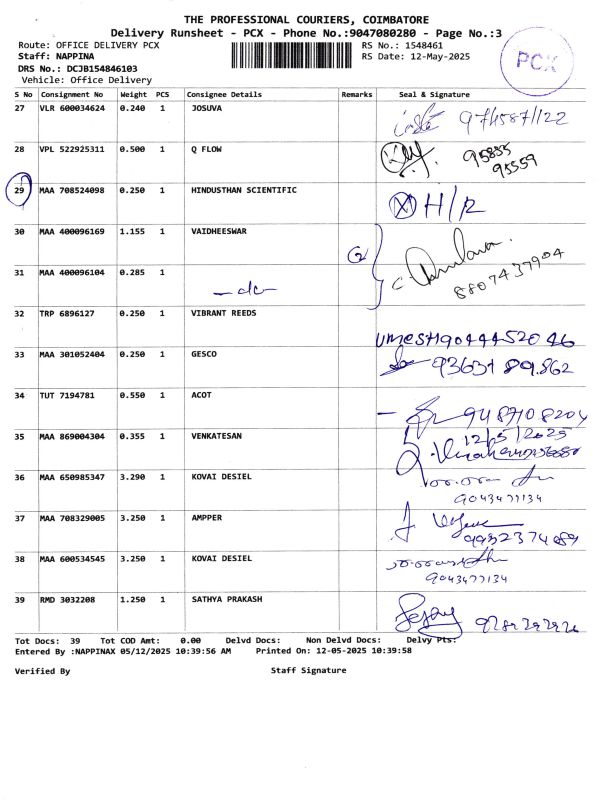 THE PROFESSIONAL COURIERS, COIMBATORE
Delivery Runsheet - PCX - Phone No.:9047080280 - Page No.:3
Route: OFFICE DELIVERY PCX RS No.: 1548461
Staff: NAPPINA RS Date: 12-May-2025
DRS No.: DCJB154846103
Vehicle: Office Delivery
PCX
S No Consignment No Weight PCS Consignee Details Remarks Seal & Signature
27 VLR 600034624 0.240 1 JOSUVA
28 VPL 522925311 0.500 1 Q FLOW 95835
95559
29 MAA 708524098 0.250 1 HINDUSTHAN SCIENTIFIC H/R
30 MAA 400096169 1.155 1 VAIDHEESWAR 2
8807437904
31 MAA 400096104 0.285 1
-do-
32 TRP 6896127 0.250 1 VIBRANT REEDS
UMESH 9044452046
33 MAA 301052404 0.250 1 GESCO 9363189862
34 TUT 7194781 0.550 1 ACOT
9487108204
35 MAA 869004304 0.355 1 VENKATESAN 12/5/2025
36 MAA 650985347 3.290 1 KOVAI DESIEL
9043477134
37 MAA 708329005 3.250 1 AMPPER
9952374089
38 MAA 600534545 3.250 1 KOVAI DESIEL
9043477134
39 RMD 3032208 1.250 1 SATHYA PRAKASH
Tot Docs: 39 Tot COD Amt: 0.00 Delvd Docs: Non Delvd Docs: Delvy Pts:
Entered By :NAPPINAX 05/12/2025 10:39:56 AM Printed On: 12-05-2025 10:39:58
Verified By Staff Signature